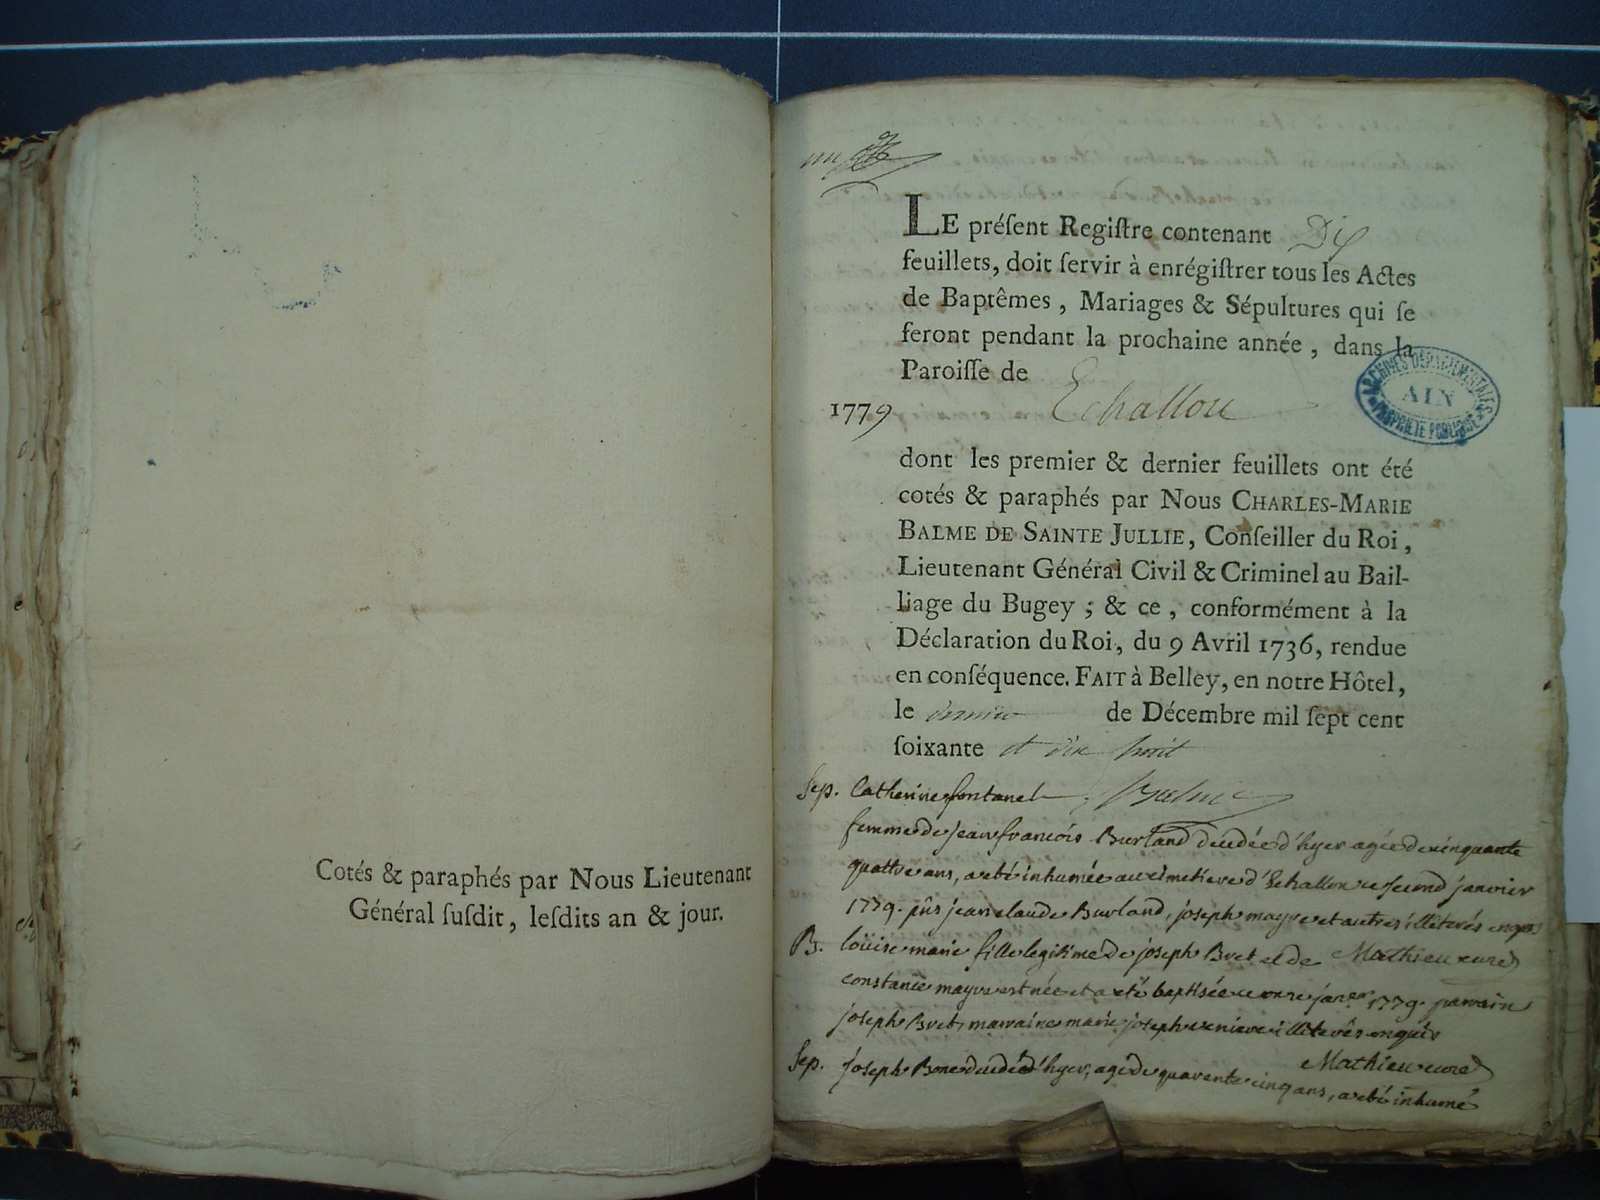 Cotés & paraphés par Nous Lieutenant
Général ſuſdit, leſdits an & jour.
LE préſent Regiſtre contenant Dix
feuillets, doit ſervir à enrégiſtrer tous les Actes
de Baptêmes, Mariages & Sépultures qui ſe
feront pendant la prochaine année, dans la
Paroiſſe de
1779 Echallon
ARCHIVES DEPARTEMENTALES
AIN
PROPRIETE PUBLIQUE
dont les premier & dernier feuillets ont été
cotés & paraphés par Nous CHARLES-MARIE
BALME DE SAINTE JULLIE, Conſeiller du Roi,
Lieutenant Général Civil & Criminel au Bail-
liage du Bugey; & ce, conformément à la
Déclaration du Roi, du 9 Avril 1736, rendue
en conſéquence. FAIT à Belley, en notre Hôtel,
le dernier de Décembre mil ſept cent
ſoixante et dix huit
Sep. Catherine fontanel Balme
femme de jean francois Burland decedée d'hyer agée de cinquante
quattre ans, a eté inhumée au cimetiere d'Echallon ce second janvier
1779. pñs jean claude Burland, joseph mayre et autres illiterés enquis
B. loüise marie fille legitime de joseph Bret et de Mathieu curé
constance mayre est née et a eté baptisée ce onze janer 1779. parrain
joseph Bret, marraine marie josephe illiterés enquis
Mathieu curé
Sep. joseph decedé d'hyer, agé de quarente cinq ans, a eté inhumé